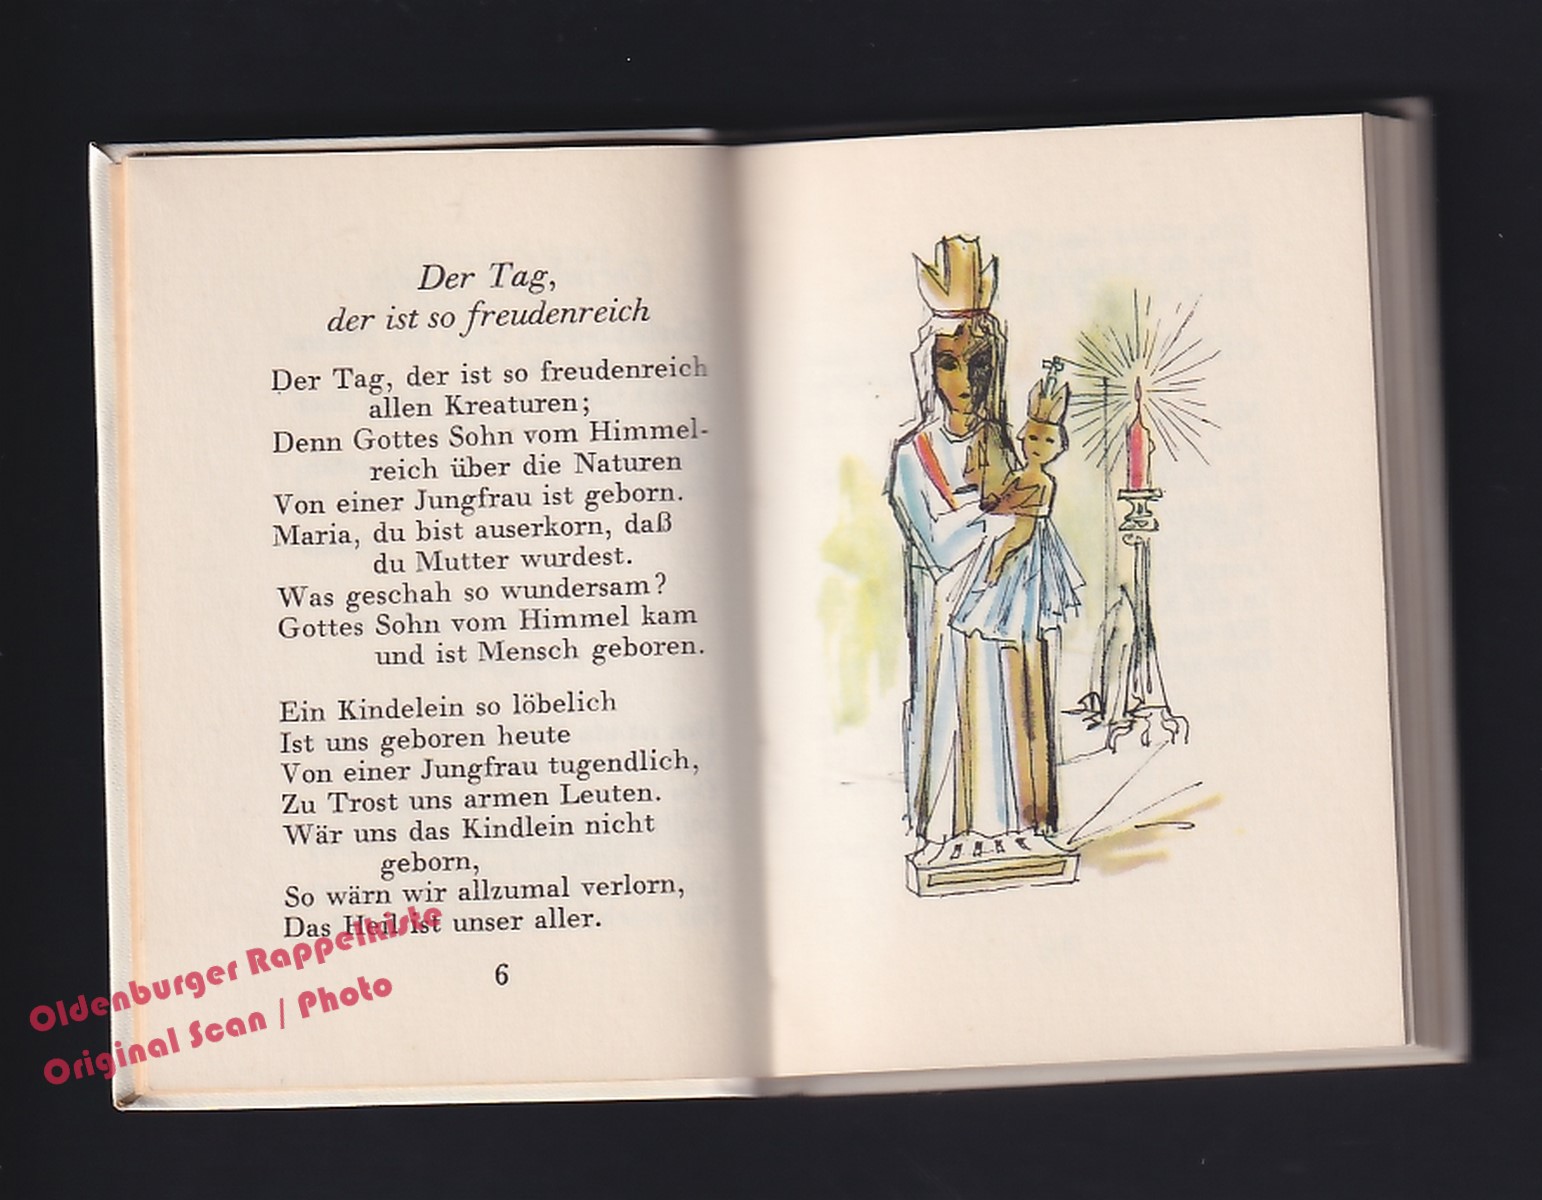 Der Tag,
der ist so freudenreich
Der Tag, der ist so freudenreich
allen Kreaturen;
Denn Gottes Sohn vom Himmel-
reich über die Naturen
Von einer Jungfrau ist geborn.
Maria, du bist auserkorn, daß
du Mutter wurdest.
Was geschah so wundersam?
Gottes Sohn vom Himmel kam
und ist Mensch geboren.
Ein Kindelein so löbelich
Ist uns geboren heute
Von einer Jungfrau tugendlich,
Zu Trost uns armen Leuten.
Wär uns das Kindlein nicht
geborn,
So wärn wir allzumal verlorn,
Das Heil ist unser aller.
6
Oldenburger Rappelkiste
Original Scan / Photo